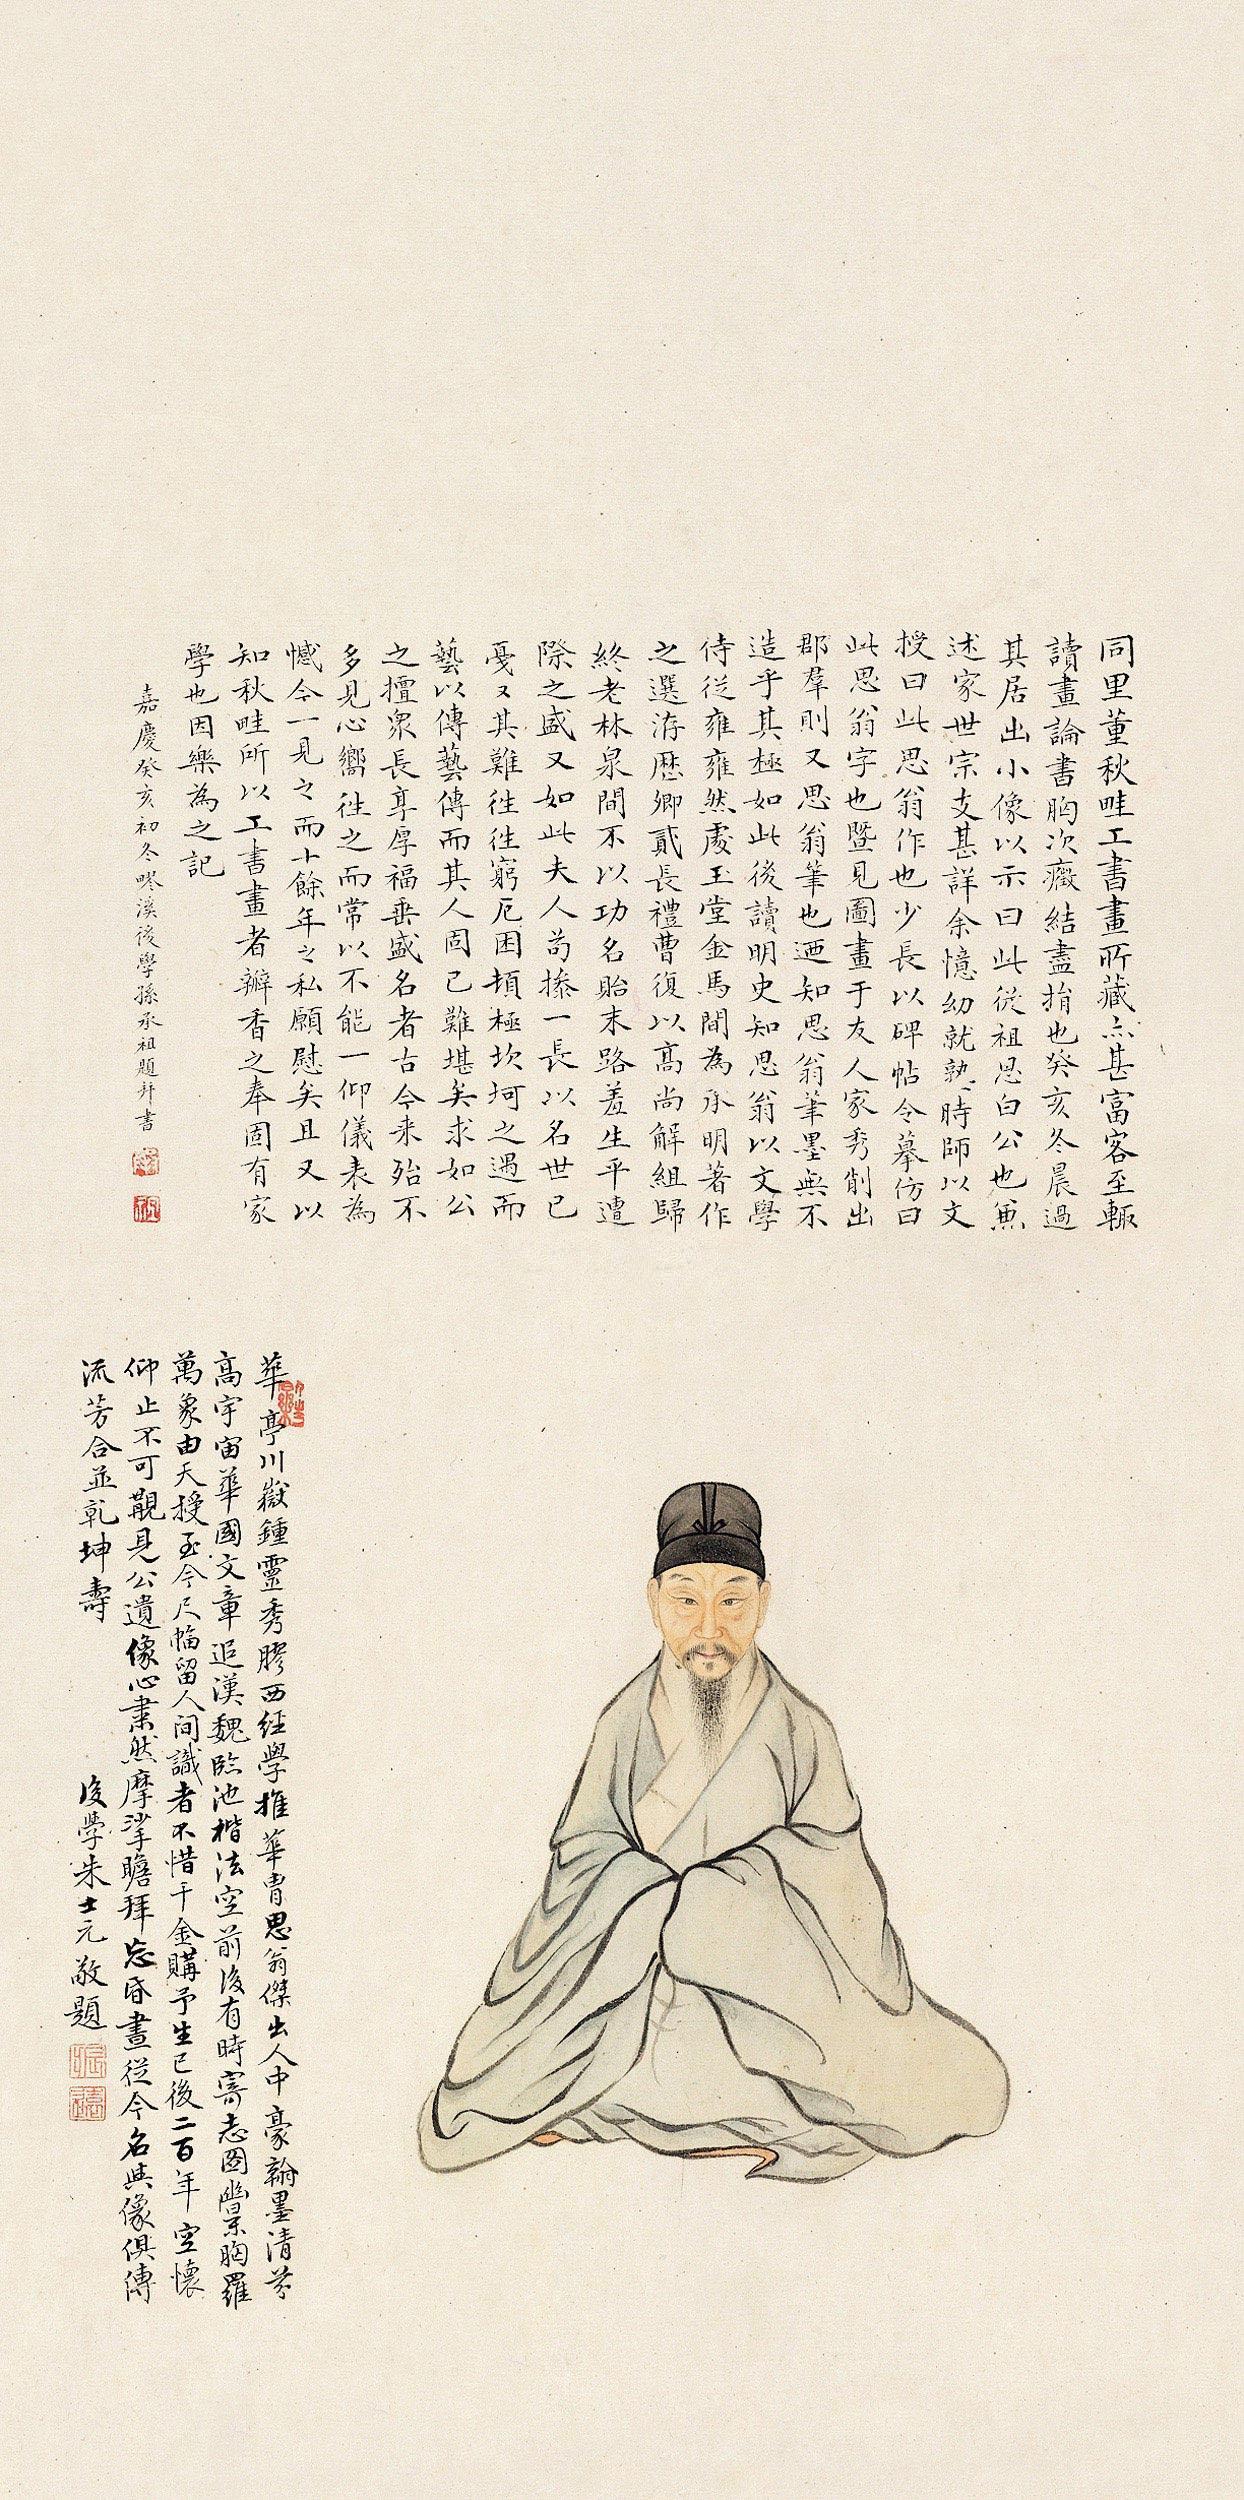 同里董秋畦工書畫所藏亦甚富客至輒
讀畫論書胸次癥結盡捐也癸亥冬晨過
其居出小像以示曰此從祖思白公也兼
述家世宗支甚詳余憶幼就孰時師以文
授曰此思翁作也少長以碑帖令摹仿曰
此思翁字也暨見圖畫于友人家秀削出
郡羣則又思翁筆也迺知思翁筆墨無不
造乎其極如此後讀明史知思翁以文學
侍從雍雍然處玉堂金馬間為承明著作
之選洊歷卿貳長禮曹復以高尚解組歸
終老林泉間不以功名貽末路羞生平遭
際之盛又如此夫人苟搽一長以名世已
戞又其難徃徃窮厄困頓極坎坷之遇而
藝以傳藝傳而其人固已難堪矣求如公
之擅衆長享厚福垂盛名者古今来殆不
多見心嚮徃之而常以不能一仰儀表為
憾今一見之而十餘年之私願慰矣且又以
知秋畦所以工書畫者瓣香之奉固有家
學也因樂為之記
嘉慶癸亥初冬嘐溪後學孫承祖題并書
華亭川嶽鍾靈秀膠西經學推華胄思翁傑出人中豪翰墨清芬
高宇宙華國文章追漢魏臨池楷法空前後有時寄志圖豐景胸羅
萬象由天授至今尺幅留人間識者不惜千金購予生已後二百年空懷
仰止不可覯見公遺像心肅然摩挲瞻拜忘昏晝從今名與像俱傳
流芳合並乾坤壽
後學朱士元敬題